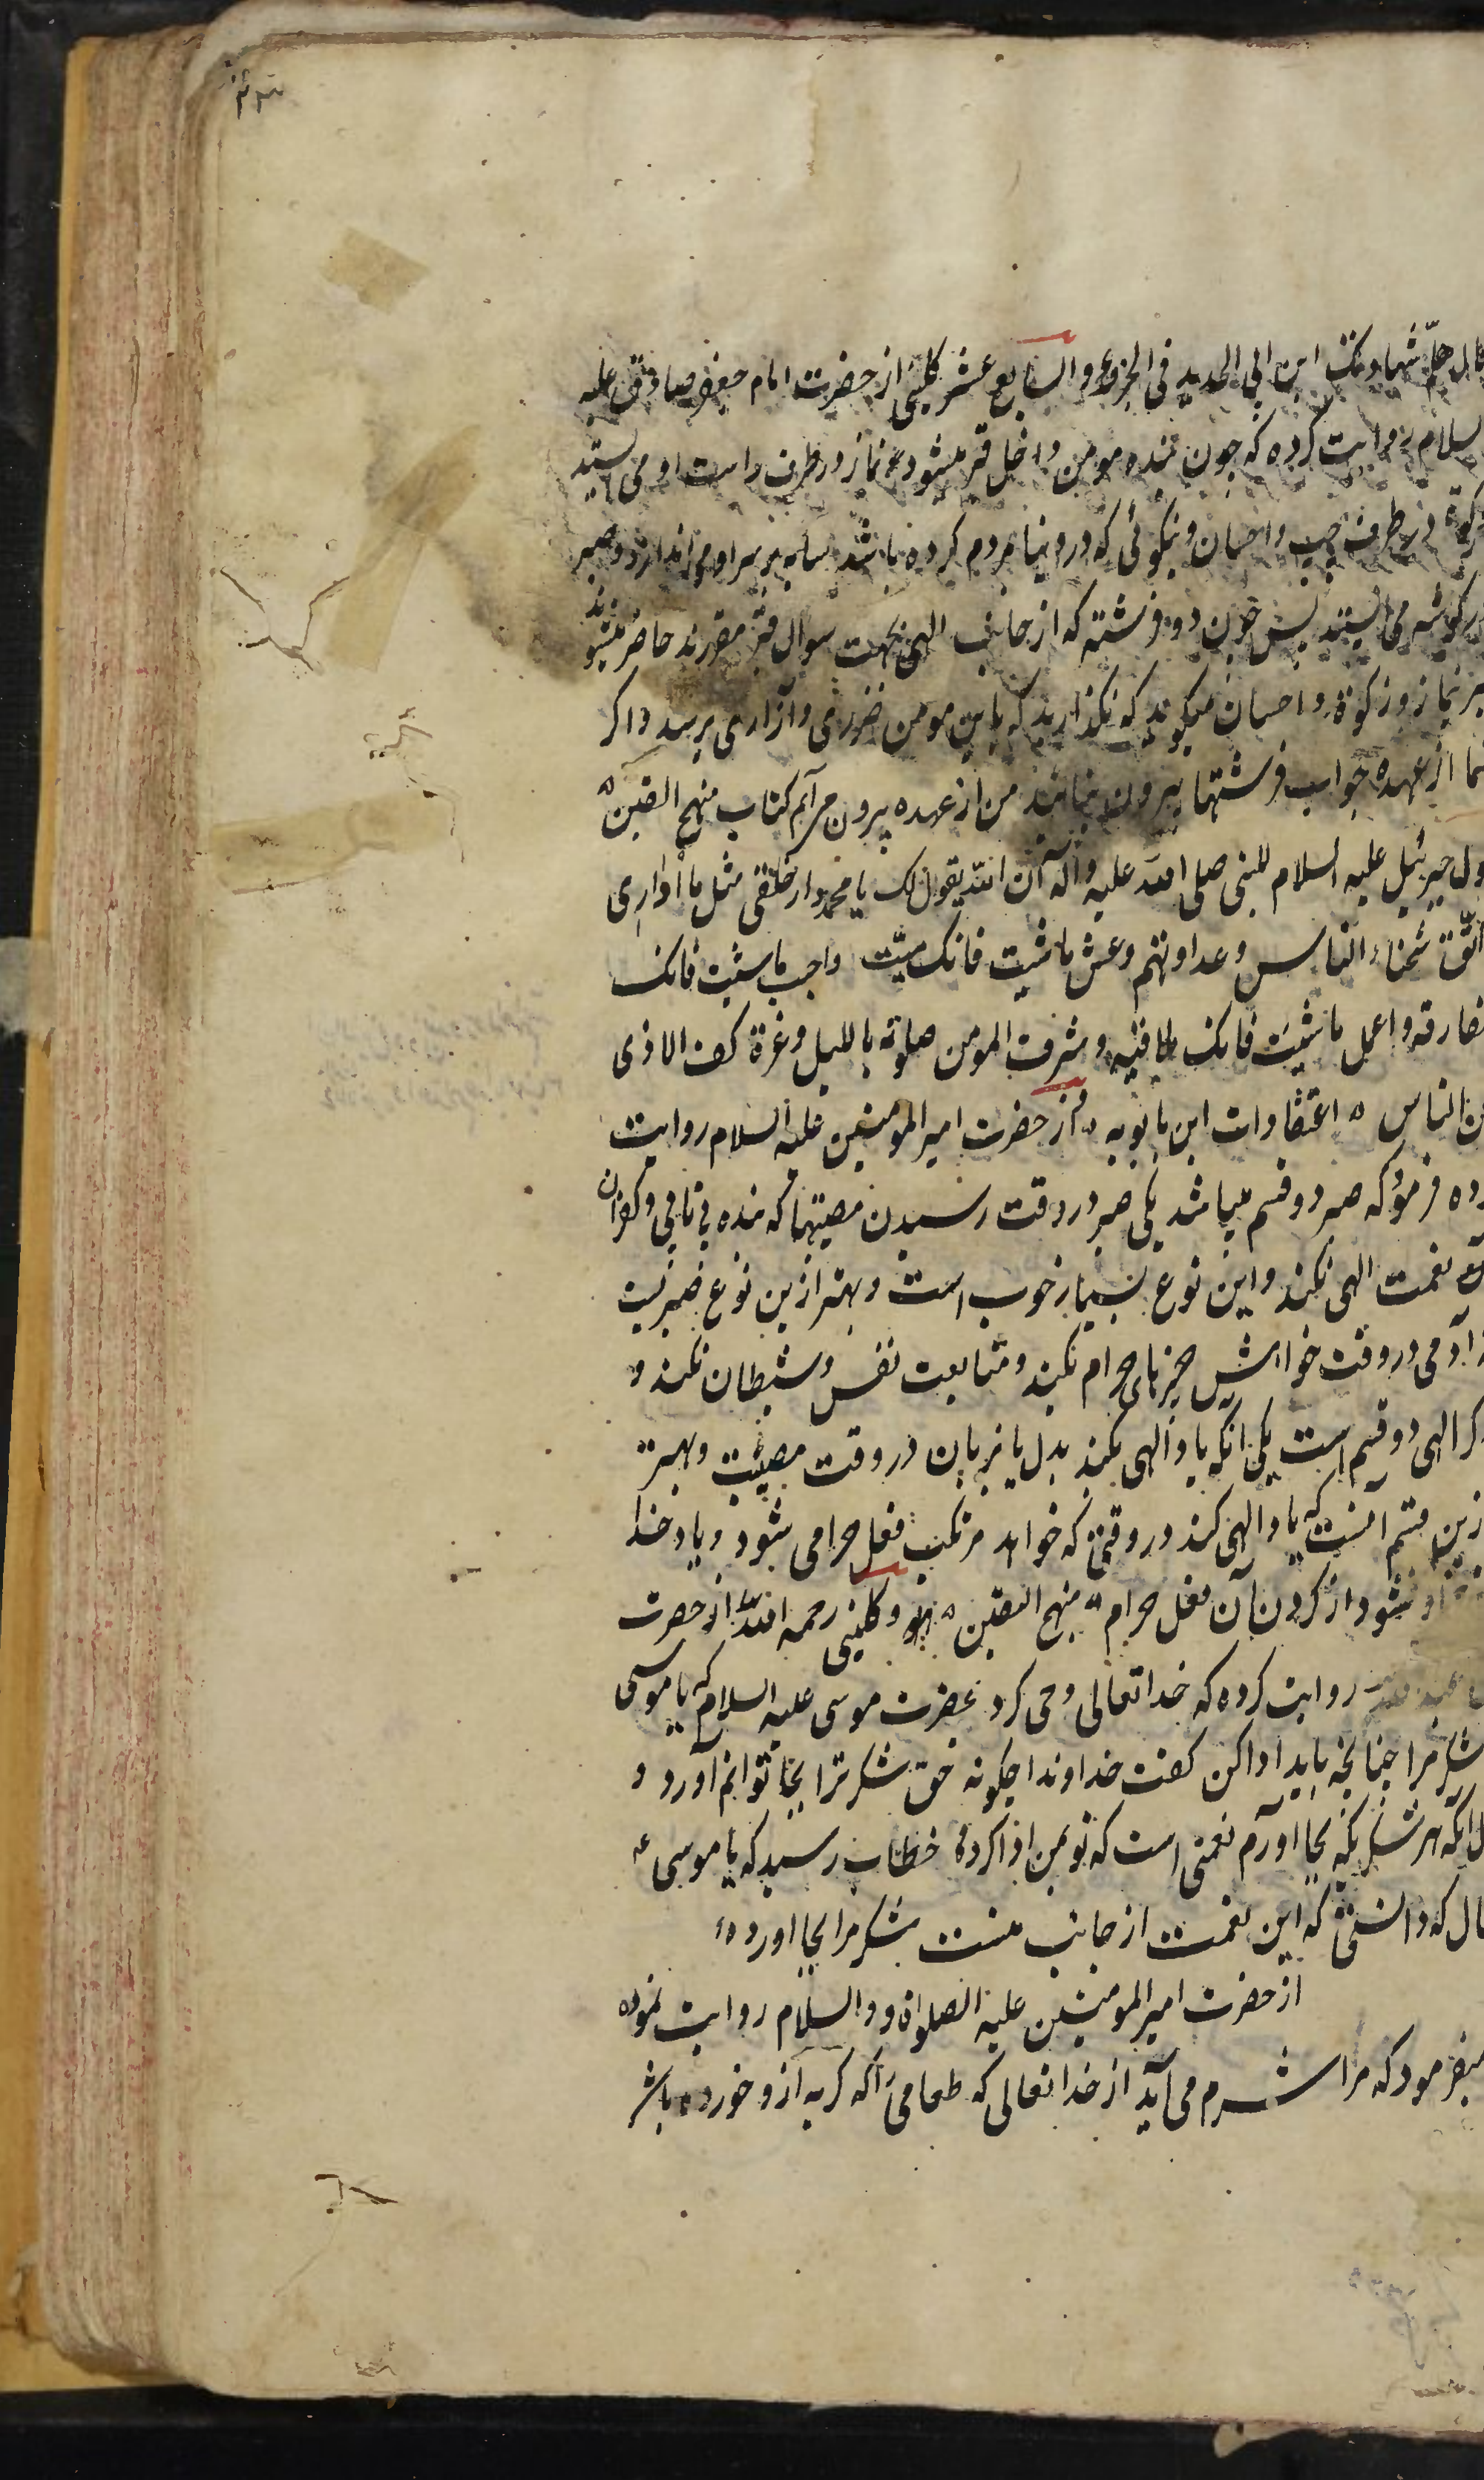 شهادتک ابن ابی الحدید فی الجزؤ والسابع عشر کلینی از حضرت امام جعفر صادق علیه
السلام روایت کرده که چون بنده مومن داخل قبر میشود نماز در طرف راست او می ایستد
زکوة در طرف چپ و احسان و نیکوئی که در دنیا بمردم کرده باشد سایه بر سر او می اندازد و صبر
در کوشه می ایستد پس چون دو فرشته که از جانب الهی بجهت سوال قبر مقررند حاضر میشوند
صبر بنماز و زکوة و احسان میکوید که نکذارید که باین مومن ضرری و آزاری برسد و اکر
شما از عهده جواب فرشتها بیرون نیائید من از عهده بیرون می آیم کتاب منهج الیقین
جبرئیل علیه السلام للنبی صلی الله علیه وآله ان الله یقول لک یا محمد دار خلقی مثل ما اداری
اتّق شحناء الناس وعداوتهم وعش ما شئت فانک میّت واحب ما شئت فانک
مفارقه واعمل ما شئت فانک ملاقیه وشرف المومن صلوته باللیل وعزة کف الاذی
عن الناس اعتقادات ابن بابویه از حضرت امیر المومنین علیه السلام روایت
کرده فرمود که صبر دو قسم میباشد یکی صبر در وقت رسیدن مصیبتها که بنده بی تابی و کفران
نعمت الهی نکند و این نوع بسیار خوب است و بهتر ازین نوع صبریست
آدمی در وقت خواهش چیزهای حرام نکند و متابعت نفس و شیطان نکند و
ذکر الهی دو قسم است یکی انکه یاد الهی بکند بدل یا بزبان در وقت مصیبت و بهتر
ازین قسم آنست که یاد الهی کند در وقتی که خواهد مرتکب فعل حرامی شود و یاد خدا
نشود از کردن آن فعل حرام منهج الیقین و کلینی رحمه الله از حضرت
روایت کرده که خدا تعالی وحی کرد بحضرت موسی علیه السلام که یا موسی
شکر مرا چنانچه باید ادا کن کفت خداوندا چکونه حق شکر ترا بجا توانم آورد و
حال آنکه هر شکریکه بجا آورم نعمتی است که تو بمن ادا کردهٔ خطاب رسید که یا موسی
حال که دانستی که این نعمت از جانب منست شکر مرا بجا اوردهٔ
از حضرت امیر المومنین علیه الصلواة ووالسلام روایت نموده
میفرمود که مرا شرم می آید از خدا تعالی که طعامی که کربه ازو خورده باشد